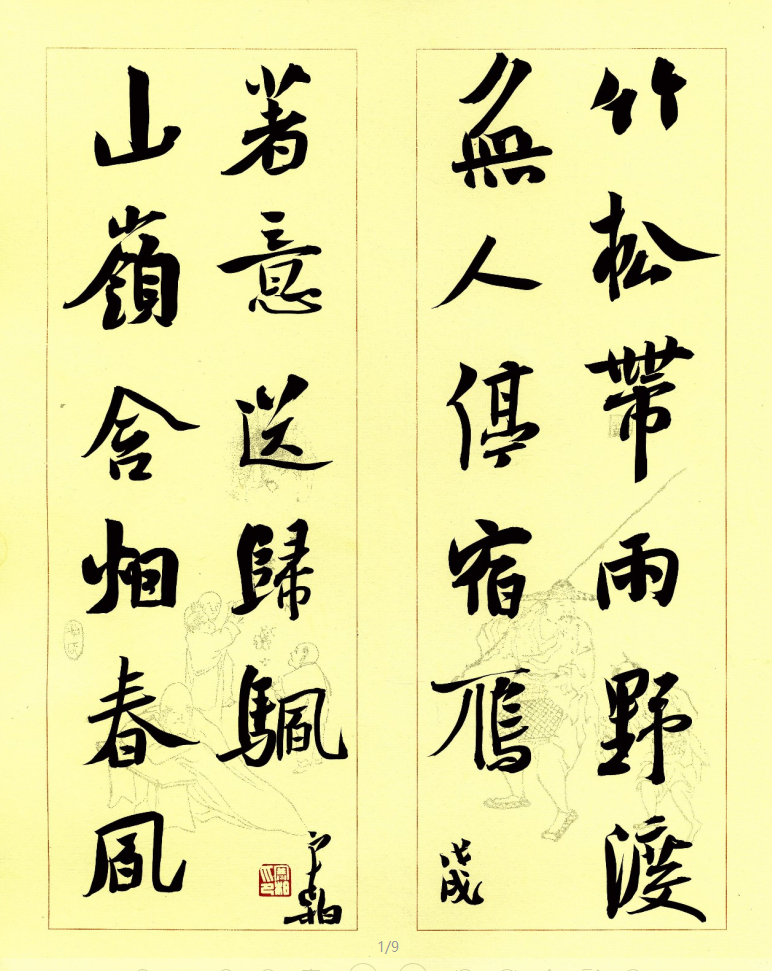 竹松帶雨野渡
無人停宿鴈
戊戌
山嶺含烟春風
著意送歸颿
1/9